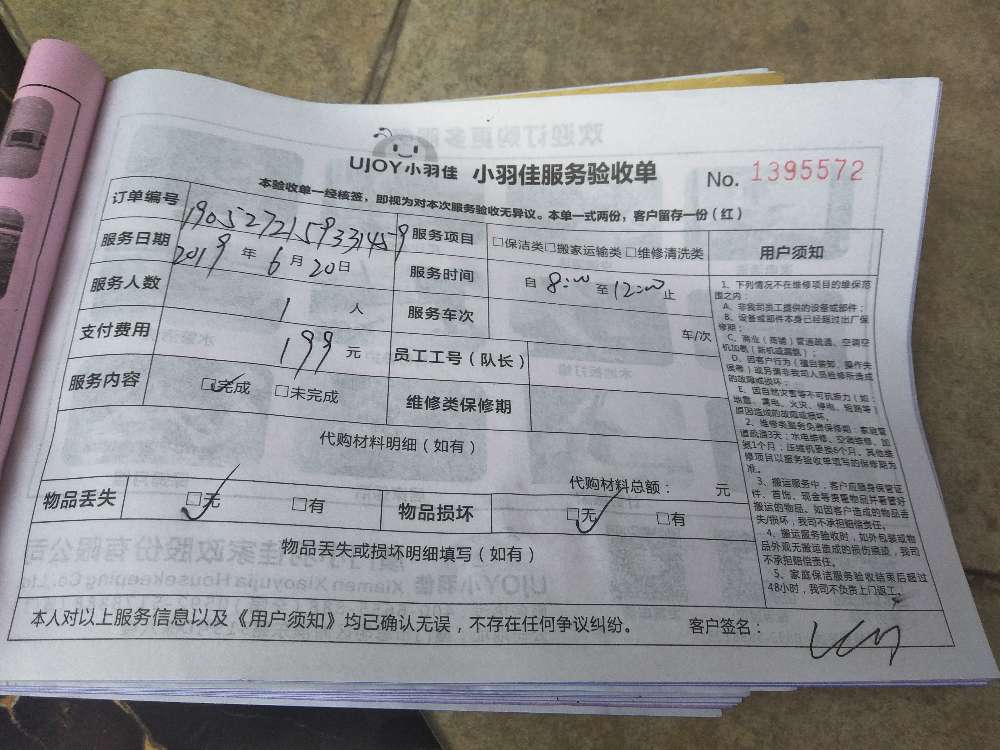 UJOY小羽佳 小羽佳服务验收单 No. 1395572
本验收单一经核签，即视为对本次服务验收无异议。本单一式两份，客户留存一份（红）
订单编号 190527215933145 9 服务项目 □保洁类□搬家运输类□维修清洗类 用户须知
服务日期 2019 年 6 月 20 日 服务时间 自 8:00 至 12:00 止
服务人数 1 人 服务车次 车/次
支付费用 199 元 员工工号（队长）
服务内容 □完成 □未完成 维修类保修期
代购材料明细（如有）
代购材料总额： 元
物品丢失 □无 □有 物品损坏 □无 □有
物品丢失或损坏明细填写（如有）
1、下列情况不在维修项目的维保范
围之内
A、非我司员工提供的设备或部件；
B、设备或部件本身已经超过出厂保
修期；
C、商业（商铺）管道疏通、空调空
机加氟（新机或漏氟）；
D、因客户行为（擅自装卸、操作失
误等）或另请非我司人员检修所造成
的故障或损坏；
E、因自然灾害等不可抗力（如：
地震、漏电、火灾、停电、短路等）
原因造成的故障或损坏。
2、维修类服务免费保修期：家庭管
道疏通3天；水电维修、空调维修、加
氟1个月；压缩机更换6个月。其他维
修项目以服务验收单填写的保修期为
准。
3、搬运服务中，客户应随身保管证
件、首饰、现金等贵重物品并看管好
搬运的物品。如因客户造成的物品丢
失/损坏，我司不承担赔偿责任。
4、搬运服务验收时，如外包装或物
品外观无搬运造成的损伤痕迹，我司
不承担赔偿责任。
5、家庭保洁服务验收结束后超过
48小时，我司不负责上门返工。
本人对以上服务信息以及《用户须知》均已确认无误，不存在任何争议纠纷。 客户签名：